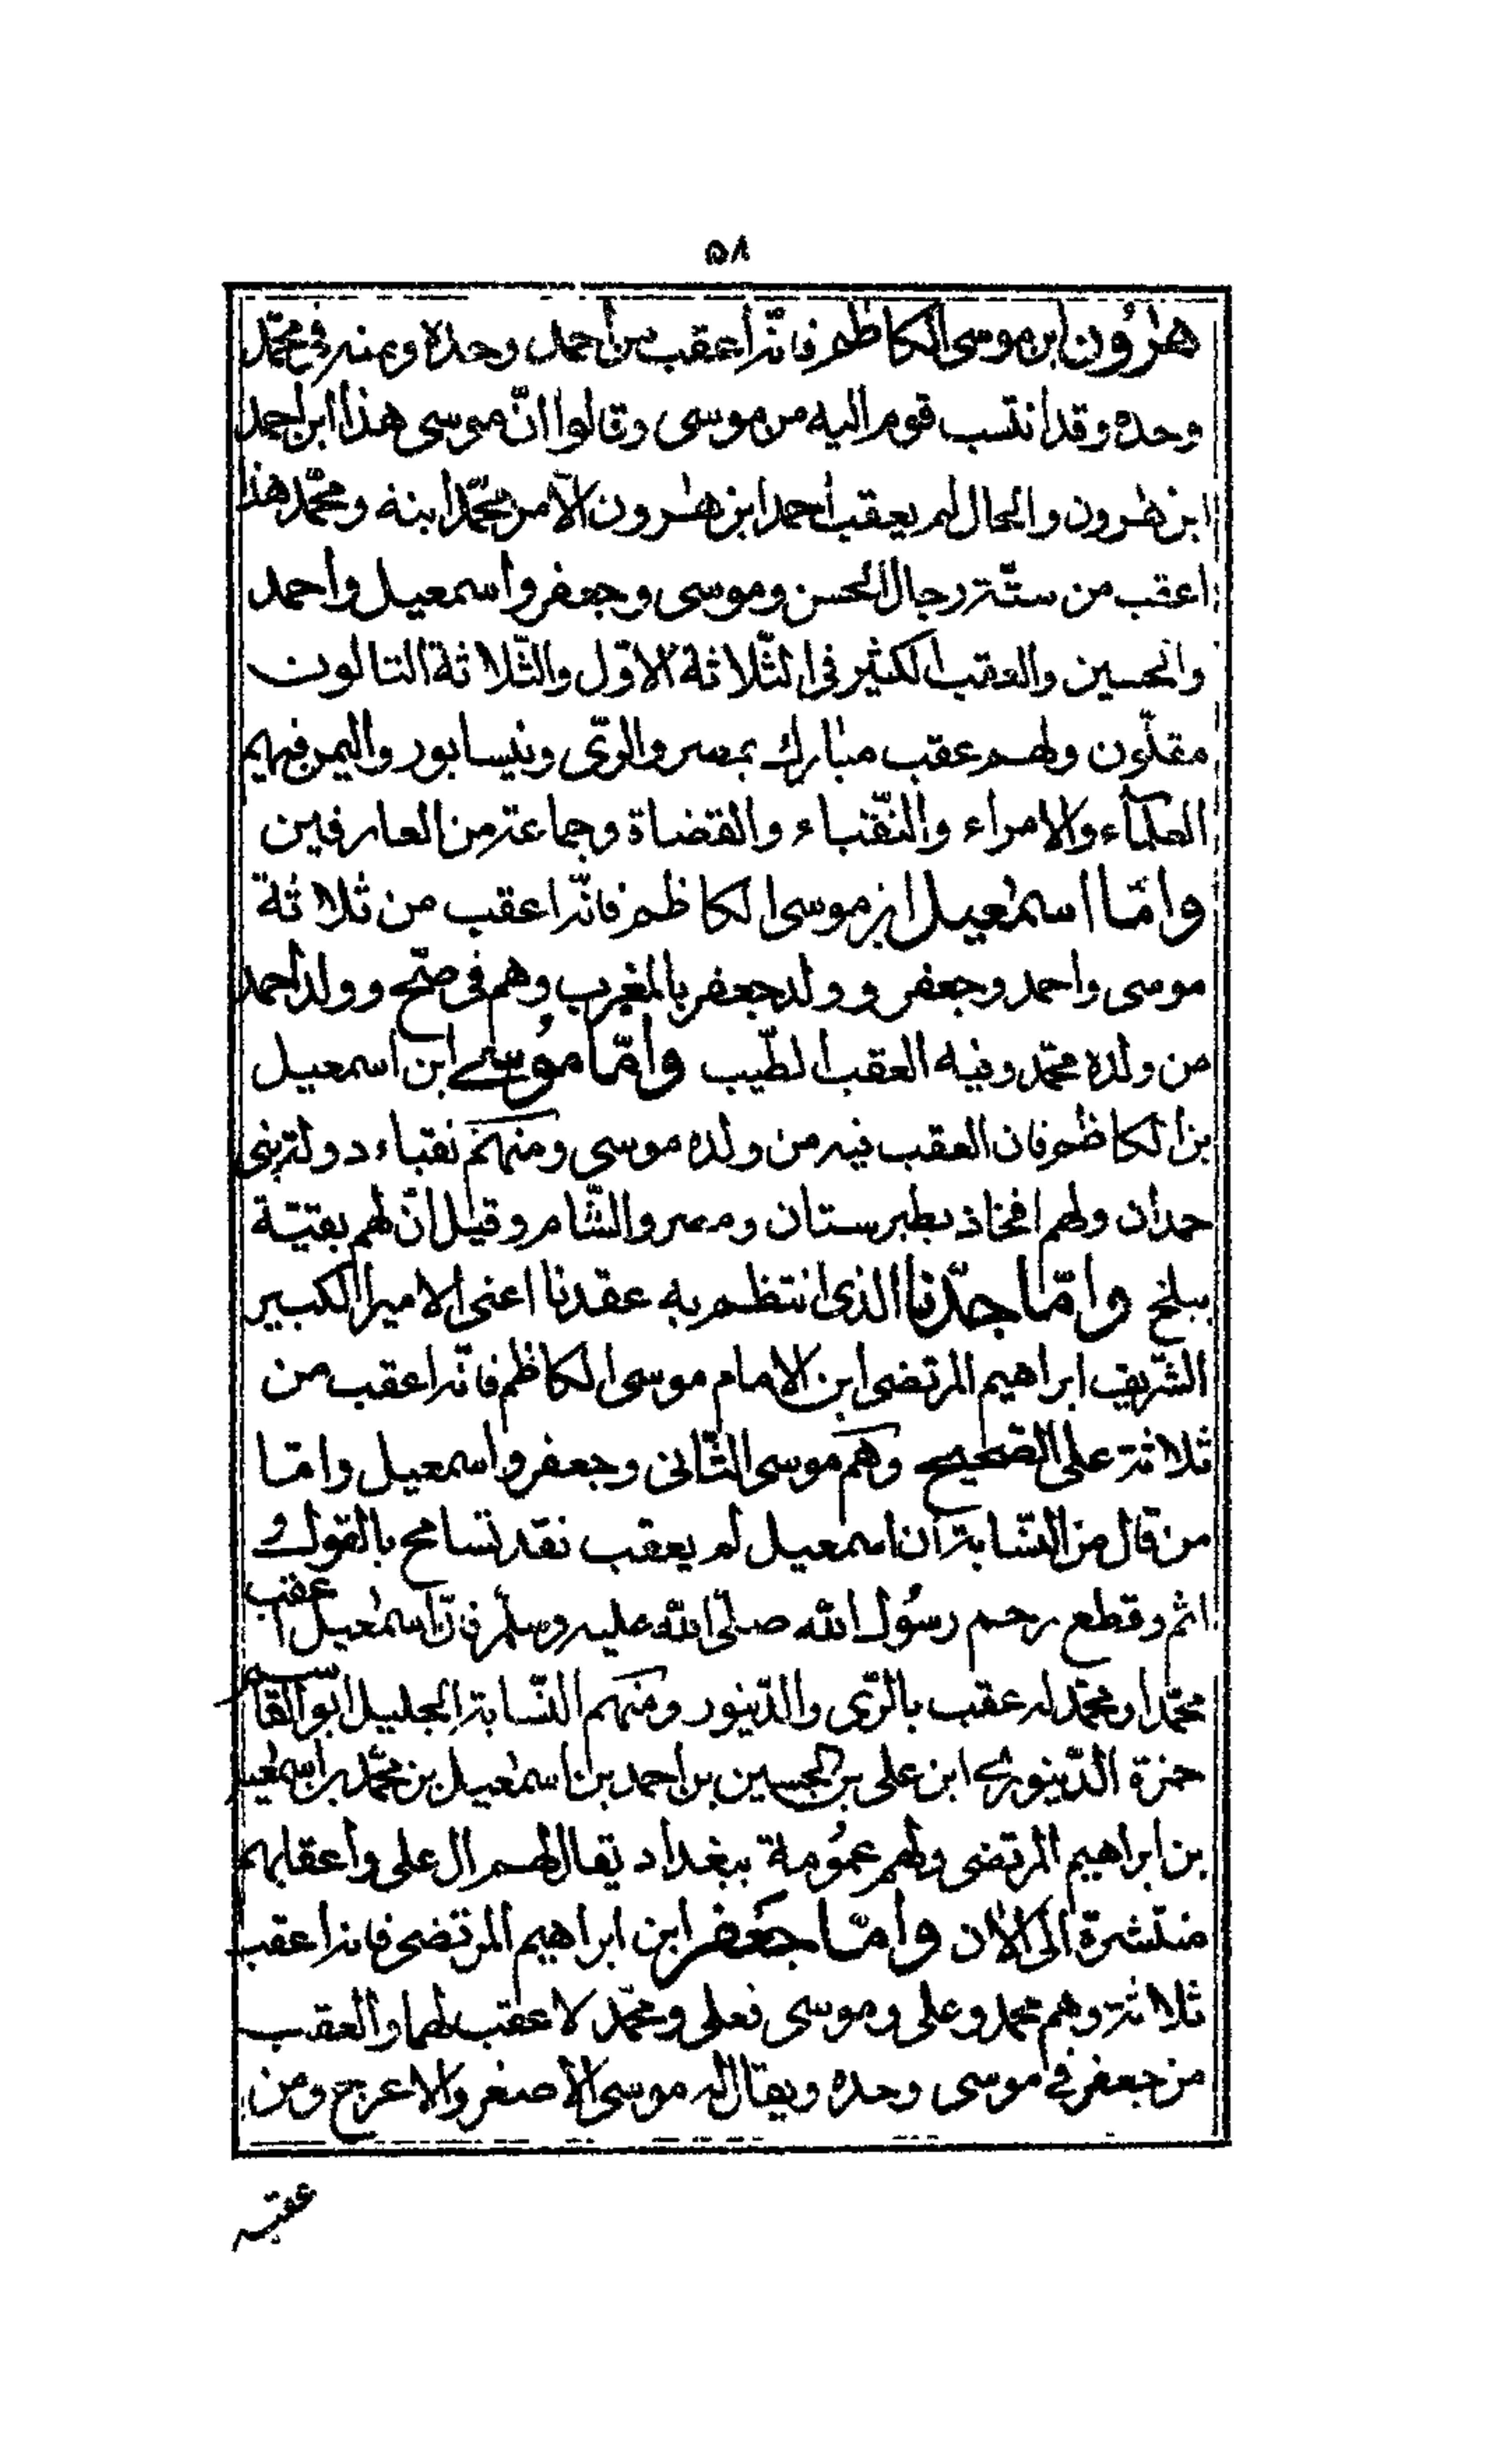 ٥٨
هرون ابن موسى الكاظم فانّه اعقب من احمد وحده ومنه فى محمّد
وحده وقد انتسب قوم اليه من موسى وقالوا انّ موسى هذا ابن احمد
ابن هرون والحال لم يعقب احمد ابن هرون الّا من محمّد ابنه ومحمّد هذا
اعقب من ستّة رجال الحسن وموسى وجعفر واسمعيل واحمد
والحسين والعقب الكثير فى الثّلاثة الاوّل والثّلاثة التالون
مقلّون ولهم عقب مبارك بمصر والرّى ونيسابور واليمن فيهم
العلمآء والامراء والنّقباء والقضاة وجماعة من العارفين
وامّا اسمعيل ابن موسى الكاظم فانّه اعقب من ثلاثة
موسى واحمد وجعفر وولد جعفر بالمغرب وهم فى صحّ وولد احمد
من ولده محمّد وفيه العقب الطّيب وامّا موسى ابن اسمعيل
بن الكاظم فان العقب فيه من ولده موسى ومنهم نقباء دولة بنى
حمدان ولهم افخاذ بطبرستان ومصر والشّام وقيل انّ لهم بقيّة
ببلخ وامّا جدّنا الذى انتظم به عقدنا اعنى الامير الكبير
الشّريف ابراهيم المرتضى ابن الامام موسى الكاظم فانّه اعقب من
ثلاثة على الصّحيح وهم موسى الثّانى وجعفر واسمعيل وامّا
من قال من النّسّابة ان اسمعيل لم يعقب فقد تسامح بالقول و
اثم وقطع رحم رسول الله صلّى الله عليه وسلّم فانّ اسمعيل اعقب
محمّدا ومحمّد له عقب بالرّى والدّينور ومنهم النّسّابة الجليل ابو القاسم
حمزة الدّينورى ابن على بن الحسين بن احمد بن اسمعيل بن محمّد بن اسمعيل
بن ابراهيم المرتضى ولهم عمومة ببغداد يقال لهم ال على واعقابهم
منتشرة الى الان وامّا جعفر ابن ابراهيم المرتضى فانه اعقب
ثلاثة وهم محمد وعلى وموسى فعلى ومحمّد لا عقب لهما والعقب
من جعفر فى موسى وحده ويقال له موسى الاصغر والاعرج ومن
عقبه